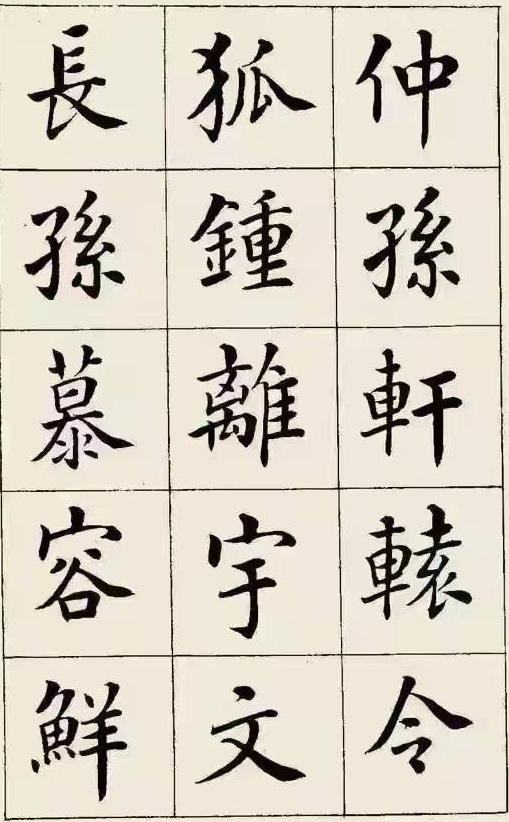 仲孫軒轅令
狐鍾離宇文
長孫慕容鮮